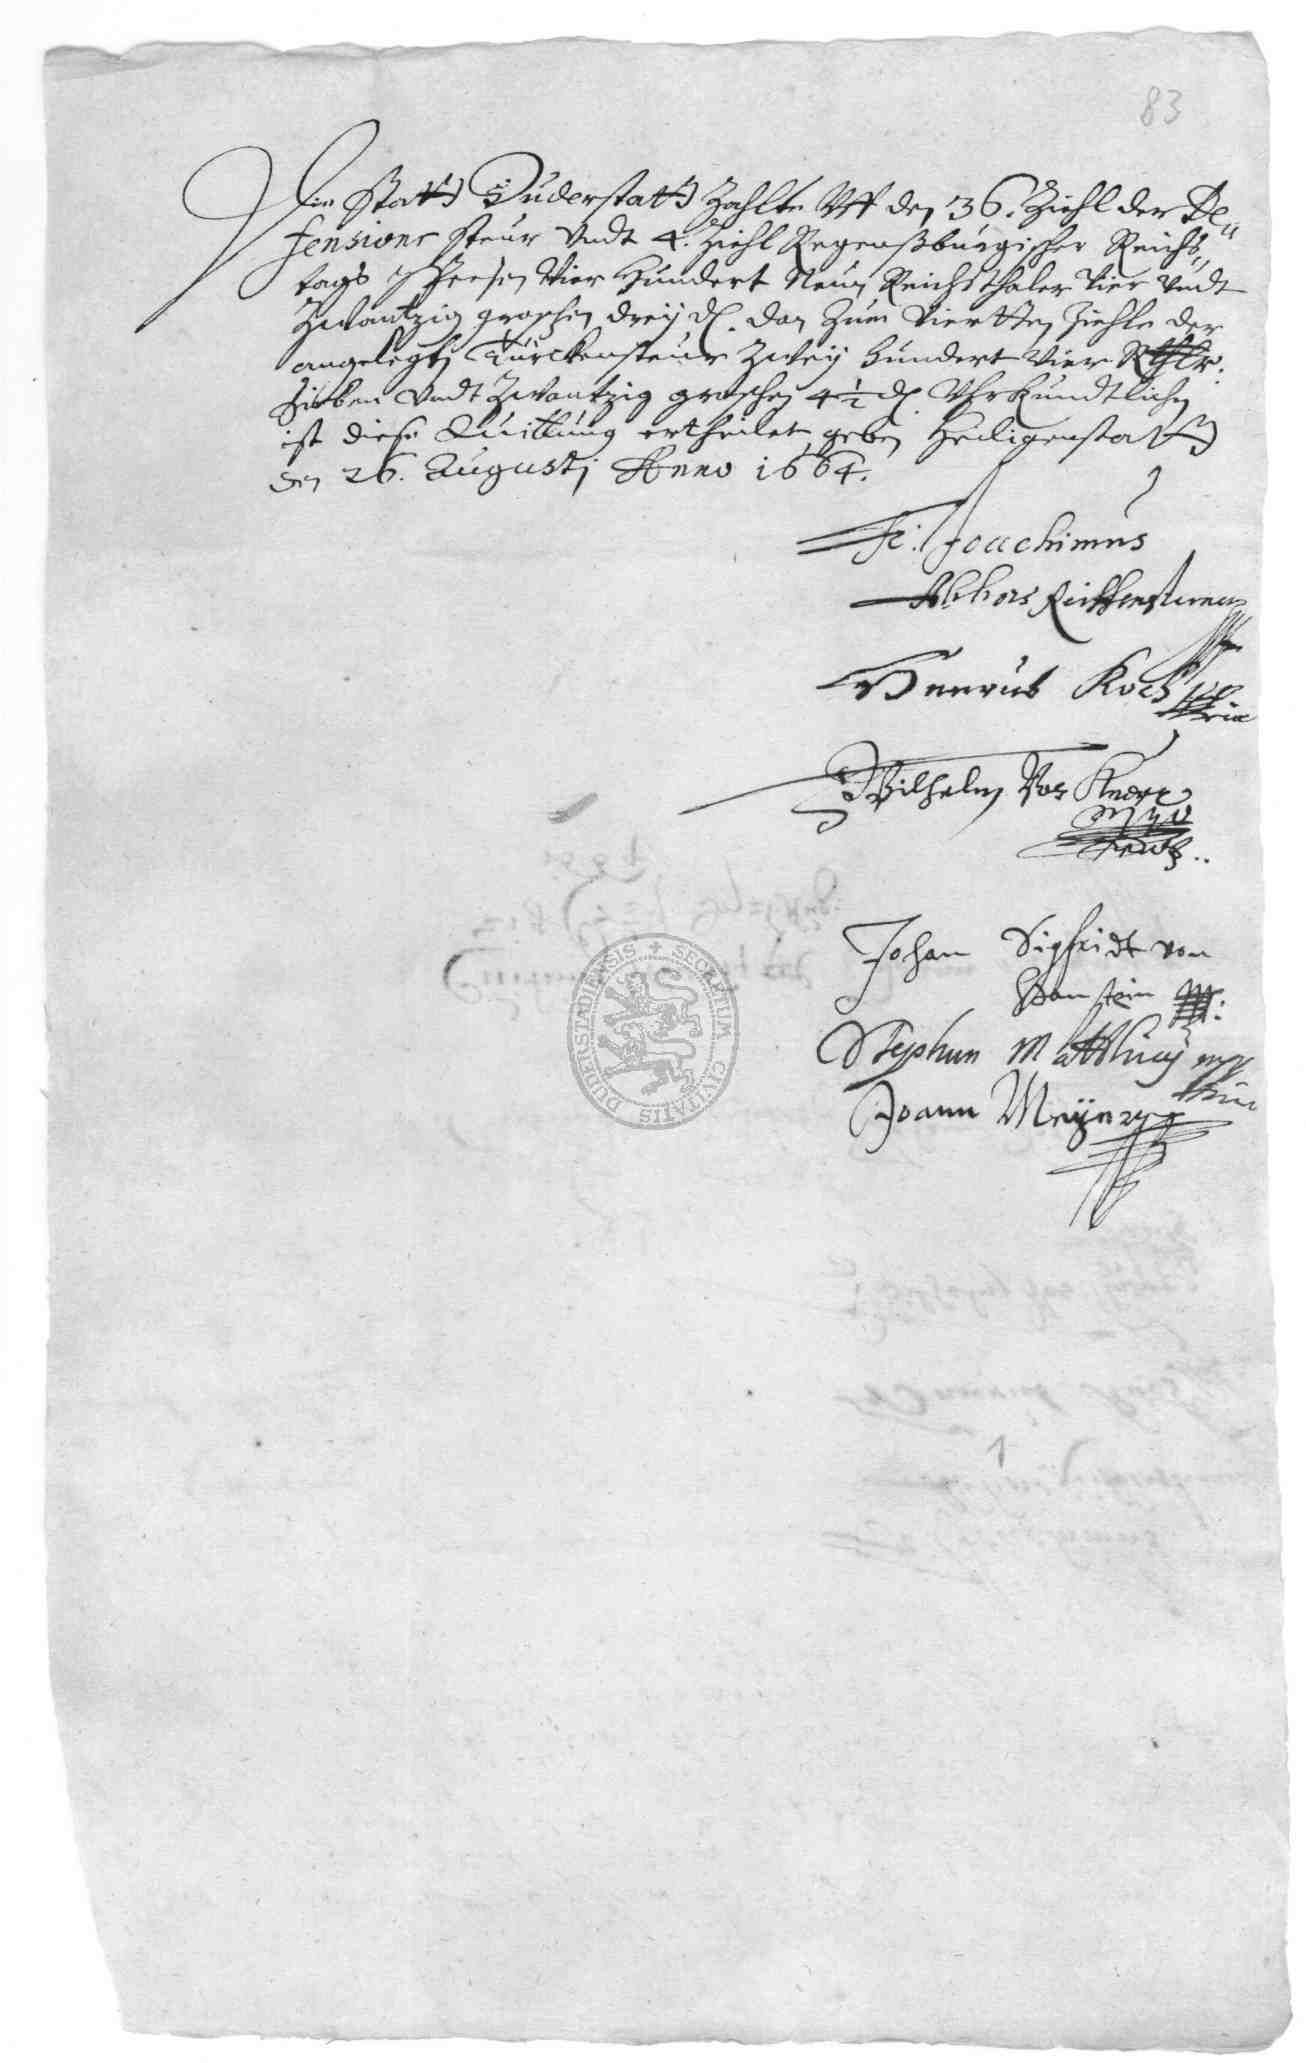 83
Die Statt Duderstatt Zahlte Vff den 36. Ziehl der De„
fensions steur Vndt 4. Ziehl Regenßburgischer Reichs„
tags Spesen Vier Hundert Neun Reichsthaler Vier Vndt
Zwantzig groschen drey d. dan Zum Viertten Ziehle der
angelegten Türckensteur Zwey Hundert Vier Rthlr.
Sieben Vndt Zwantzig groschen 4½ d. Vhrkundtlichen
ist diese Quittung ertheilet, geben Heiligenstatt
den 26. Augusti Anno 1664.
Fr. Joachimus
Abbas Reiffenstenen
Koch mp
pria
Wilhelm Von Knorr
mpp
Johan Sigfridt von
Hanstein
Stephan mp
pria
Joann
SECRETUM CIVITATIS DUDERSTADIENSIS